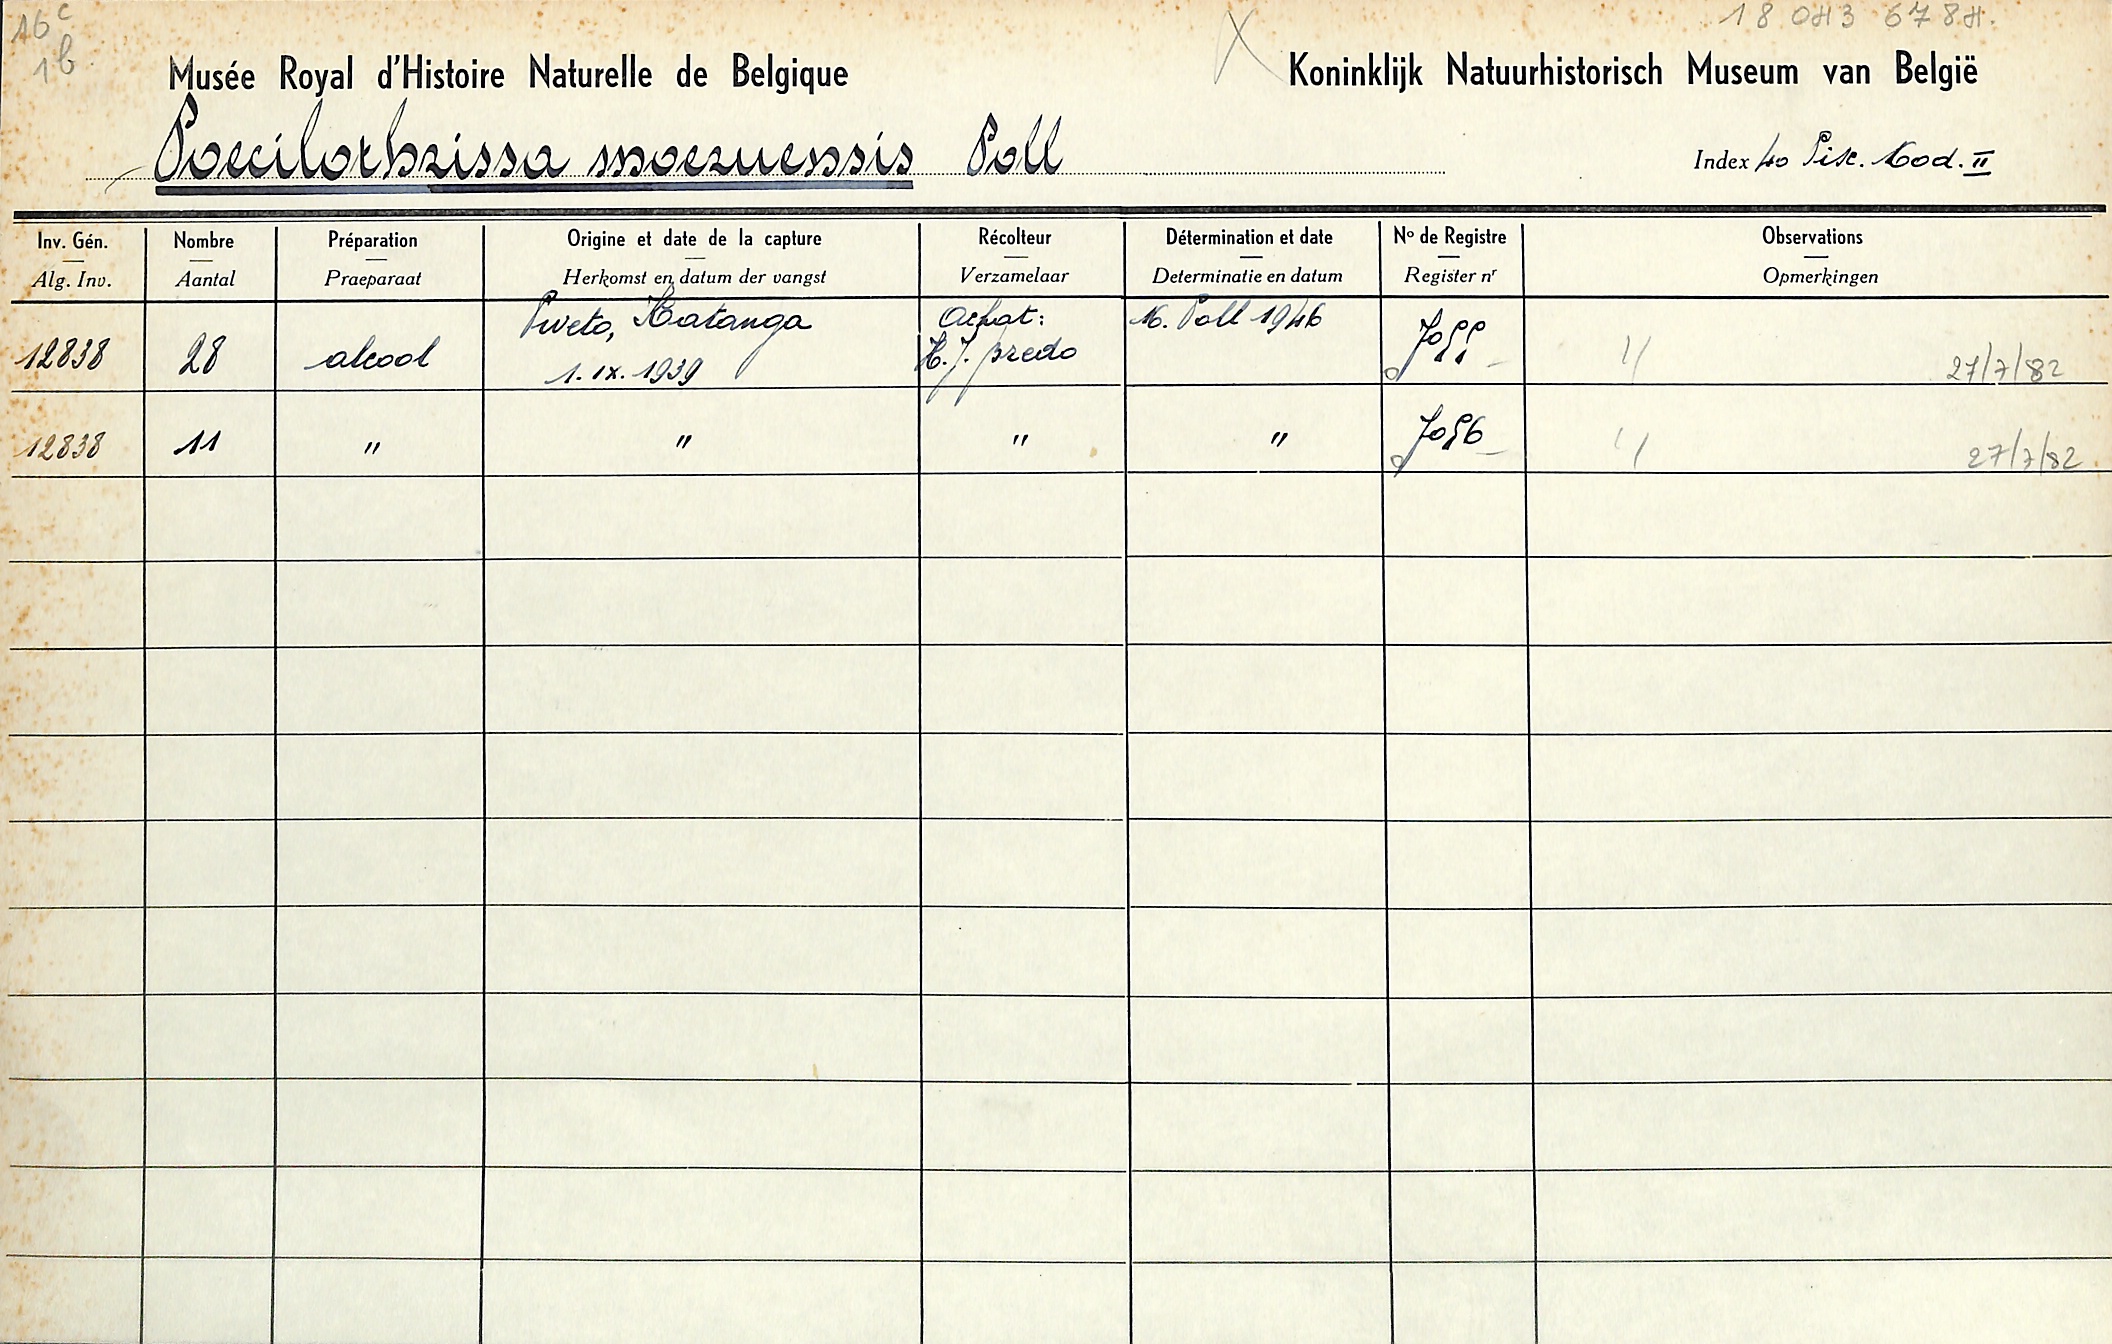 16c
1b
18 043 678 4.
X
Musée Royal d'Histoire Naturelle de Belgique
Koninklijk Natuurhistorisch Museum van België
Poecilothrissa moeruensis Poll
Index 40 Pisc. Mod. II
Inv. Gén. Nombre Préparation Origine et date de la capture Récolteur Détermination et date No de Registre Observations
Alg. Inv. Aantal Praeparaat Herkomst en datum der vangst Verzamelaar Determinatie en datum Register nr Opmerkingen
Pweto, Katanga Achat: M. Poll 1946
12838 28 alcool 1. IX. 1939 H. J. Bredo 7055 27/7/82
12838 11 " " " " 7056 27/7/82